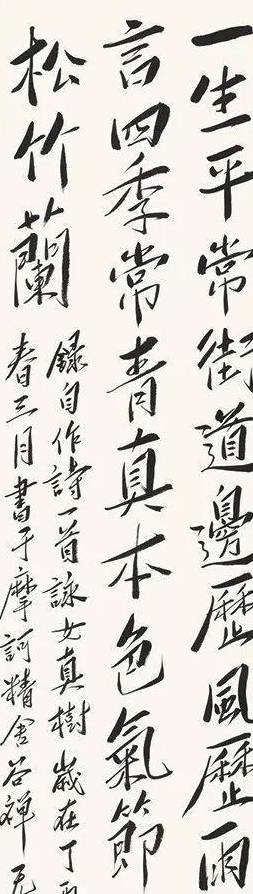 一生平常街道邊歷風歷雨
言四季常青真本色氣節
松竹蘭
錄自作詩一首詠女真樹歲在丁
春三月書于摩訶精舍谷禪